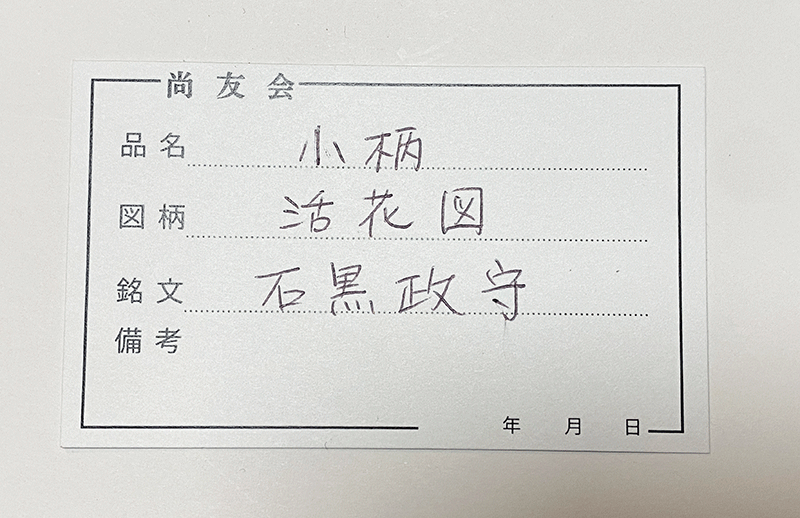 尚友会
品名 小柄
図柄 活花図
銘文 石黒政守
備考
年 月 日